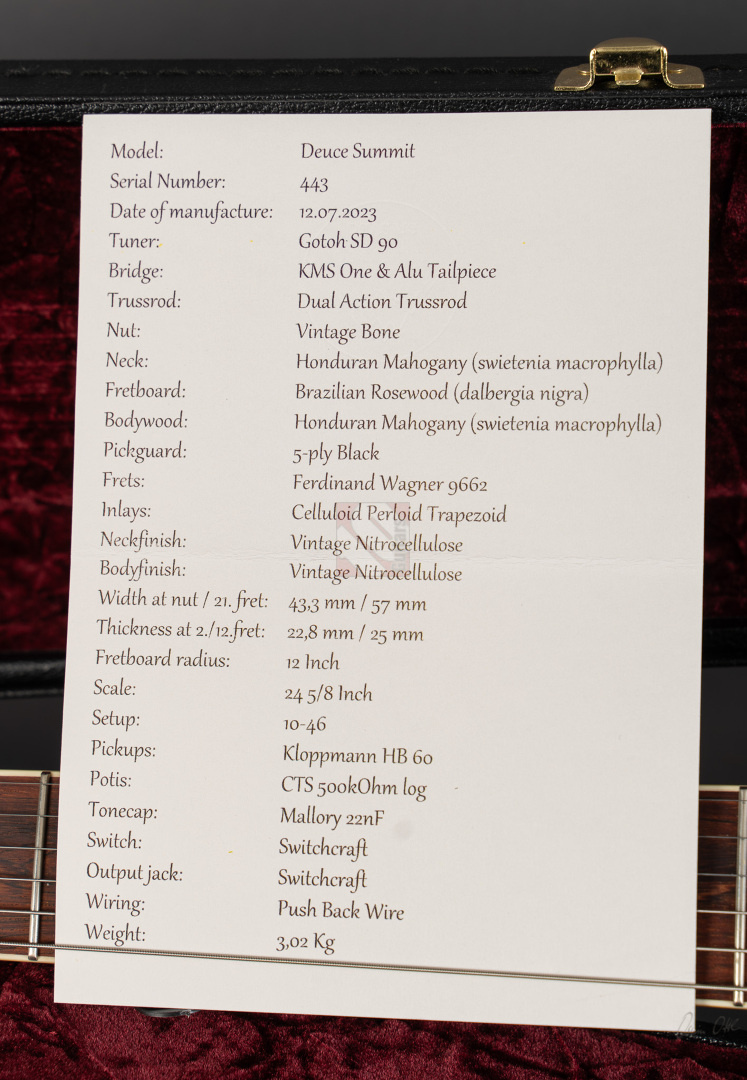 Model: Deuce Summit
Serial Number: 443
Date of manufacture: 12.07.2023
Tuner: Gotoh SD 90
Bridge: KMS One & Alu Tailpiece
Trussrod: Dual Action Trussrod
Nut: Vintage Bone
Neck: Honduran Mahogany (swietenia macrophylla)
Fretboard: Brazilian Rosewood (dalbergia nigra)
Bodywood: Honduran Mahogany (swietenia macrophylla)
Pickguard: 5-ply Black
Frets: Ferdinand Wagner 9662
Inlays: Celluloid Perloid Trapezoid
Neckfinish: Vintage Nitrocellulose
Bodyfinish: Vintage Nitrocellulose
Width at nut / 21. fret: 43,3 mm / 57 mm
Thickness at 2./12.fret: 22,8 mm / 25 mm
Fretboard radius: 12 Inch
Scale: 24 5/8 Inch
Setup: 10-46
Pickups: Kloppmann HB 60
Potis: CTS 500kOhm log
Tonecap: Mallory 22nF
Switch: Switchcraft
Output jack: Switchcraft
Wiring: Push Back Wire
Weight: 3,02 Kg